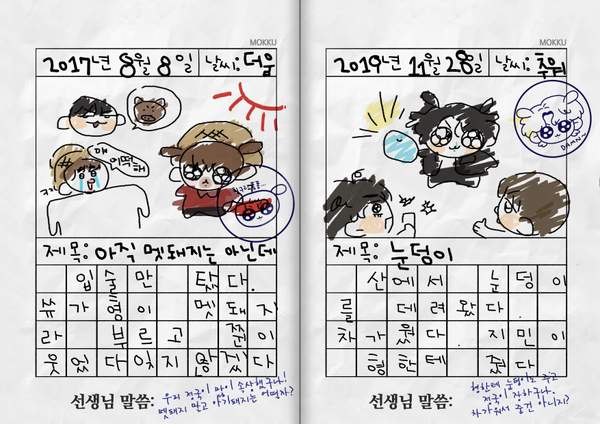 MOKKU
2017년 8월 8일 날씨: 더움
애
어떡해
ㅋㅋ
제목: 아직 멧돼지는 아닌데
입술만 탔다.
쓔가 형이 멧돼지
라 부르고 쮠이
웃었다 잊지 않겠다
선생님 말씀: 우리 정국이 많이 속상했구나!
멧돼지 말고 아기돼지는 어떨까?
MOKKU
2019년 11월 28일 날씨: 추워
DAMN~
제목: 눈덩이
산에서 눈덩이
를 데려왔다.
차가웠다. 지민이
형한테 줬다
선생님 말씀: 형한테 눈덩이도 주고
정국이 착하구나.
차가워서 준건 아니지?